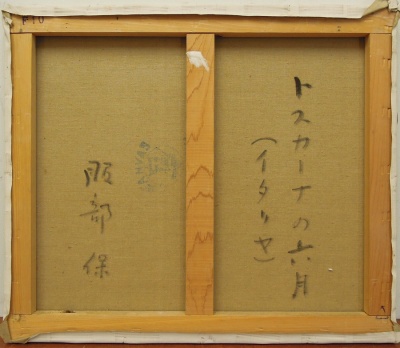 トスカーナの六月
(イタリヤ)
阪部 保
F10